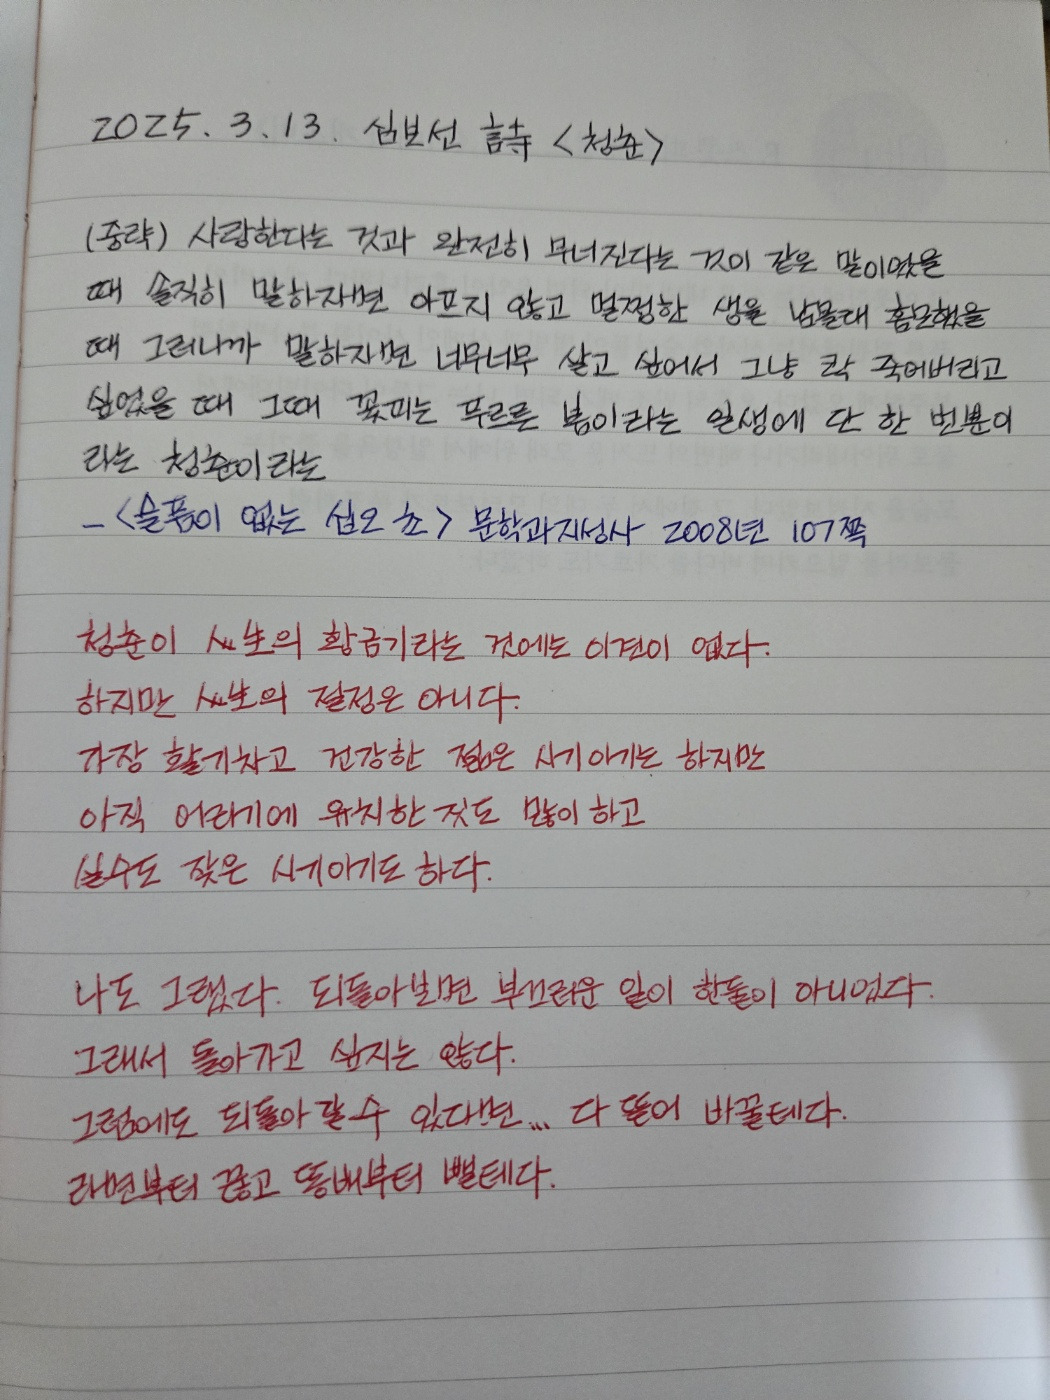 2025. 3. 13. 심보선 詩 <청춘>
(중략) 사랑한다는 것과 완전히 무너진다는 것이 같은 말이었을
때 솔직히 말하자면 아프지 않고 멀쩡한 생을 남몰래 흠모했을
때 그러니까 말하자면 너무너무 살고 싶어서 그냥 콱 죽어버리고
싶었을 때 그때 꽃피는 푸르른 봄이라는 일생에 단 한 번뿐이
라는 청춘이라는
- <슬픔이 없는 십오 초> 문학과지성사 2008년 107쪽
청춘이 人生의 황금기라는 것에는 이견이 없다.
하지만 人生의 절정은 아니다.
가장 활기차고 건강한 젊은 시기이기는 하지만
아직 어리기에 유치한 짓도 많이 하고
실수도 잦은 시기이기도 하다.
나도 그랬다. 되돌아보면 부끄러운 일이 한둘이 아니었다.
그래서 돌아가고 싶지는 않다.
그럼에도 되돌아 갈 수 있다면... 다 뜯어 바꿀테다.
라면부터 끊고 똥배부터 뺄테다.